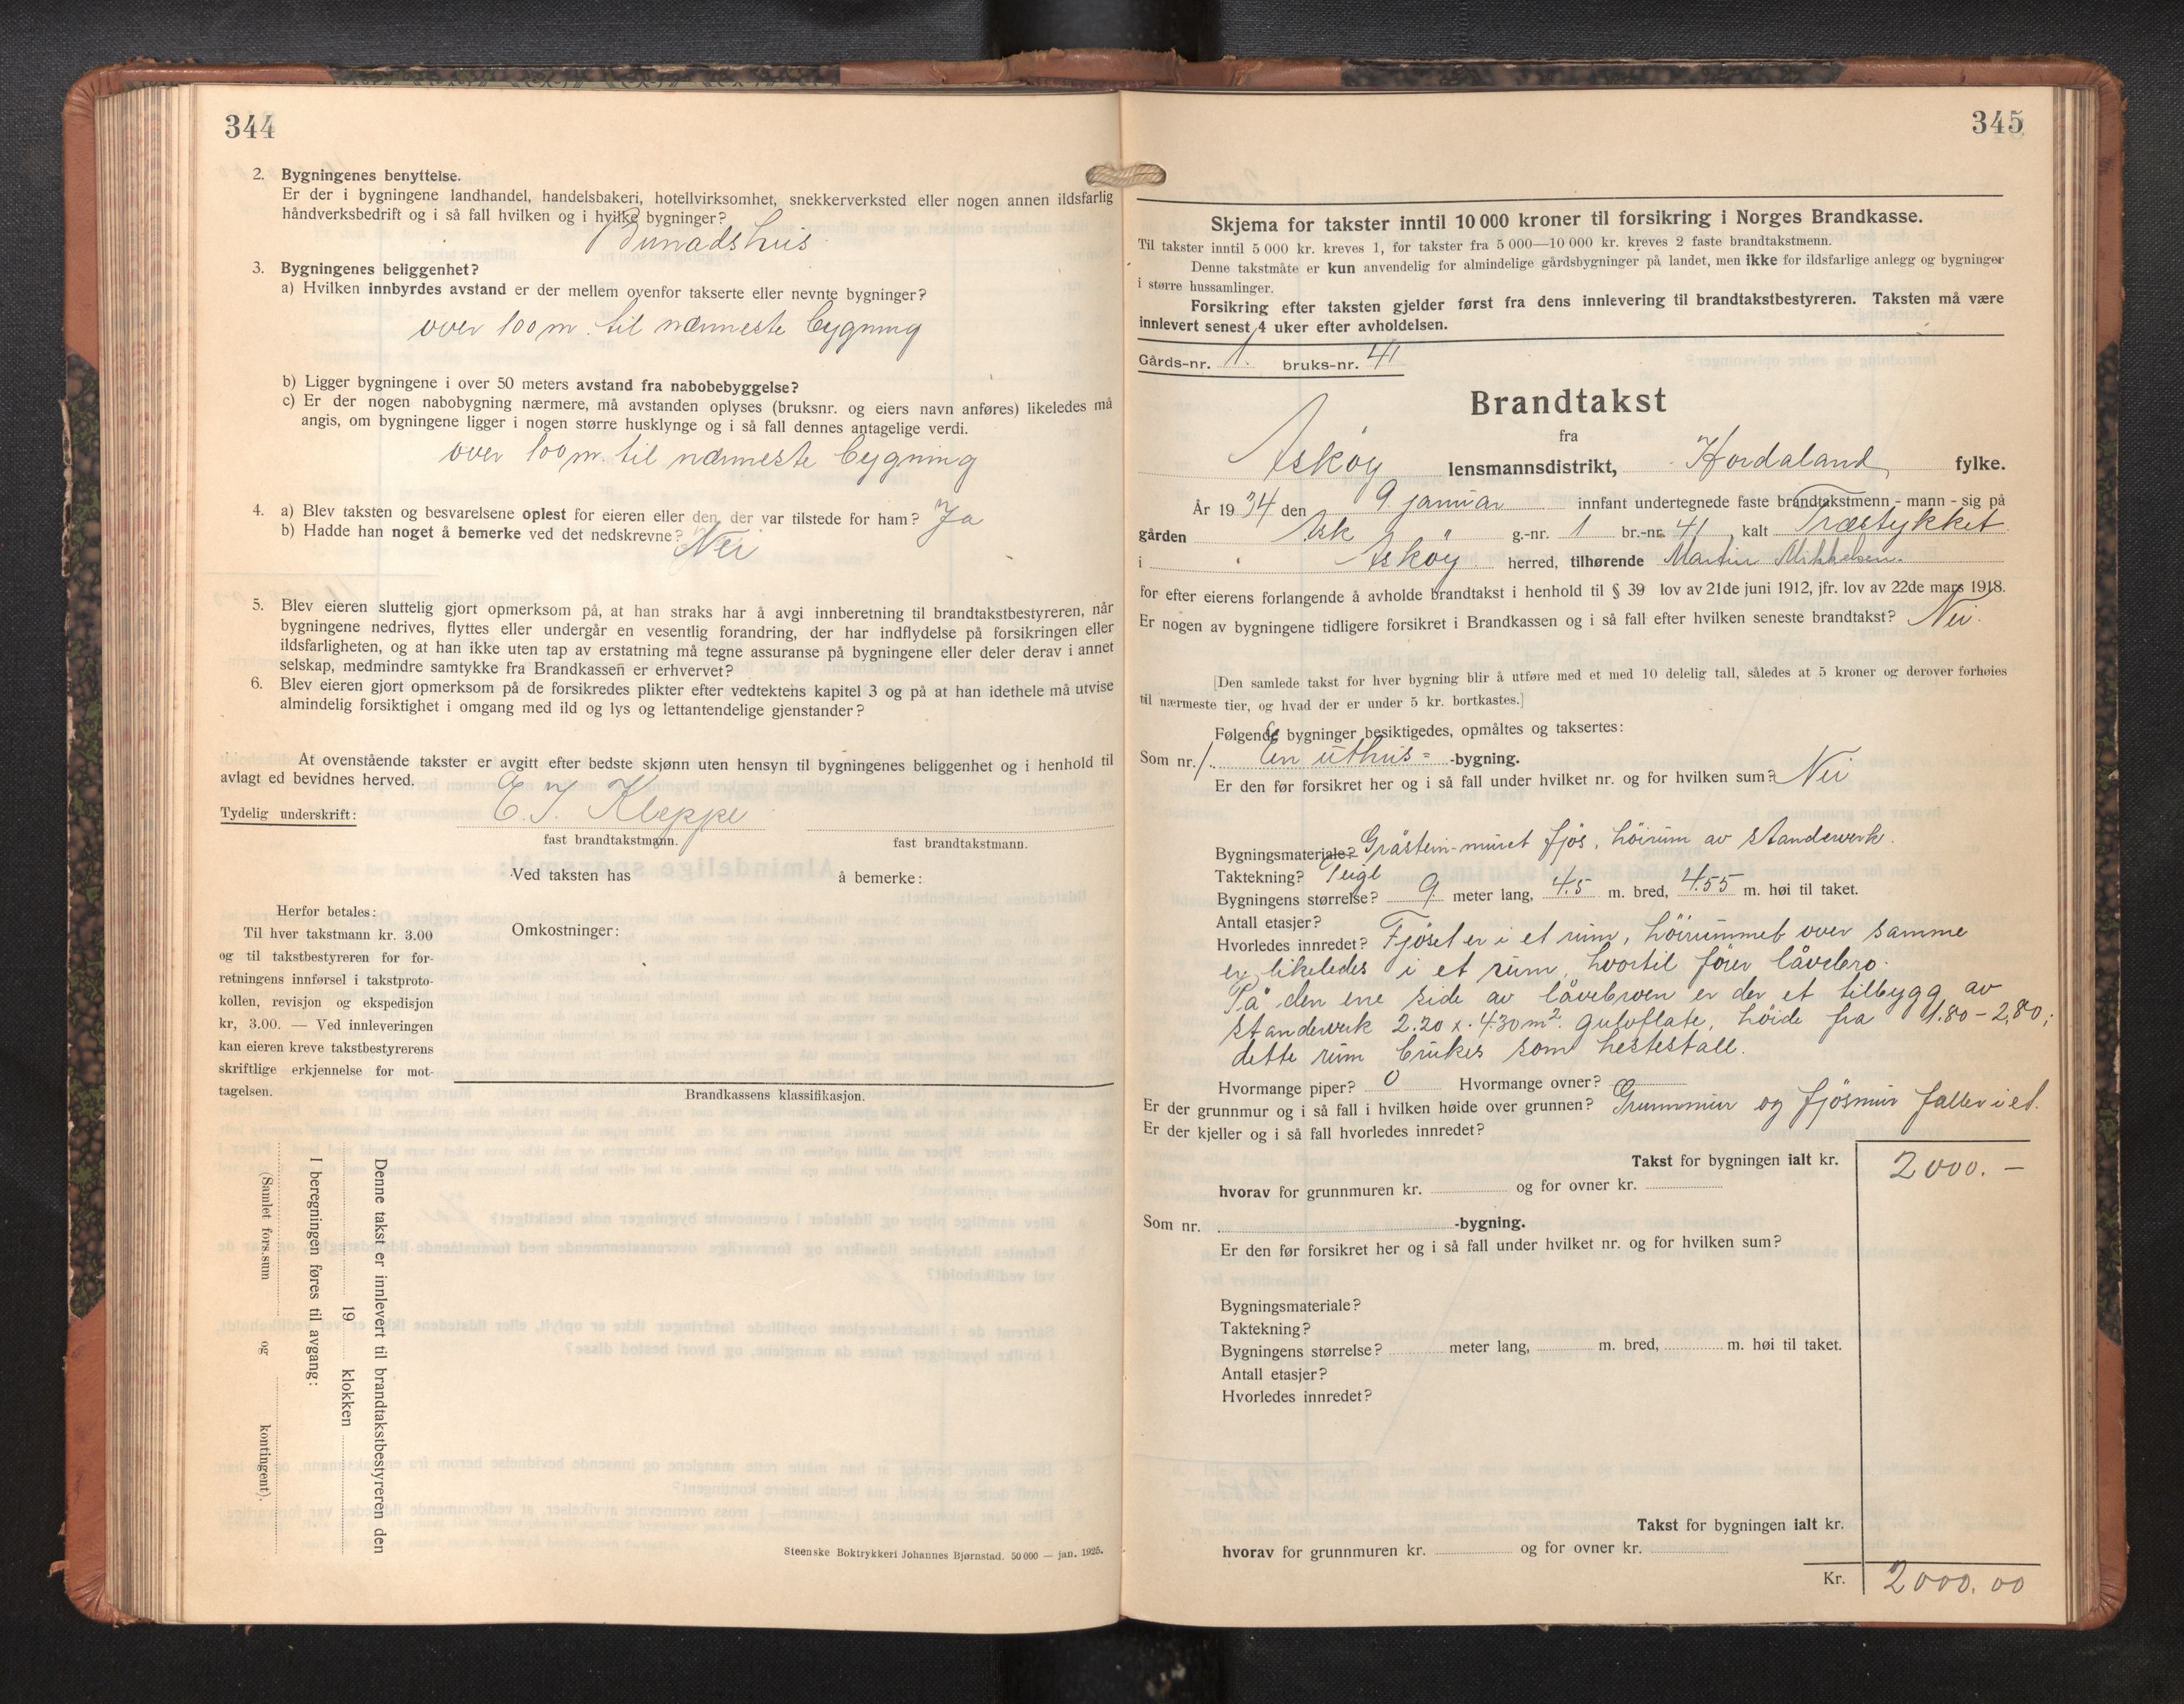 344
2. Bygningenes benyttelse.
Er der i bygningene landhandel, handelsbakeri, hotellvirksomhet, snekkerverksted eller nogen annen ildsfarlig
håndverksbedrift og i så fall hvilken og i hvilke bygninger?
3. Bygningenes beliggenhet?
a) Hvilken innbyrdes avstand er der mellem ovenfor takserte eller nevnte bygninger?
over 100 m. til nærmeste bygning
b) Ligger bygningene i over 50 meters avstand fra nabobebyggelse?
c) Er der nogen nabobygning nærmere, må avstanden oplyses (bruksnr. og eiers navn anføres) likeledes må
angis, om bygningene ligger i nogen større husklynge og i så fall dennes antagelige verdi.
over 100 m. til nærmeste bygning
4. a) Blev taksten og besvarelsene oplest for eieren eller den der var tilstede for ham? Ja
b) Hadde han noget å bemerke ved det nedskrevne? Nei
5. Blev eieren sluttelig gjort opmerksom på, at han straks har å avgi innberetning til brandtakstbestyreren, når
bygningene nedrives, flyttes eller undergår en vesentlig forandring, der har indflydelse på forsikringen eller
ildsfarligheten, og at han ikke uten tap av erstatning må tegne assuranse på bygningene eller deler derav i annet
selskap, medmindre samtykke fra Brandkassen er erhvervet?
6. Blev eieren gjort opmerksom på de forsikredes plikter efter vedtektens kapitel 3 og på at han idethele må utvise
almindelig forsiktighet i omgang med ild og lys og lettantendelige gjenstander?
At ovenstående takster er avgitt efter bedste skjønn uten hensyn til bygningenes beliggenhet og i henhold til
avlagt ed bevidnes herved.
Tydelig underskrift: E. I. Kleppe
fast brandtakstmann. fast brandtakstmann.
Ved taksten has å bemerke:
Herfor betales:
Til hver takstmann kr. 3.00
og til takstbestyreren for for-
retningens innførsel i takstproto-
kollen, revisjon og ekspedisjon
kr, 3.00. — Ved innleveringen
kan eieren kreve takstbestyrerens
skriftlige erkjennelse for mot-
tagelsen.
Omkostninger:
Brandkassens klassifikasjon.
Denne takst er innlevert til brandtakstbestyreren den
19 klokken
I beregningen føres til avgang:
(Samlet fors.sum og kontingent).
Steenske Boktrykkeri Johannes Bjørnstad. 50 000 — jan. 1925.
345
Skjema for takster inntil 10 000 kroner til forsikring i Norges Brandkasse.
Til takster inntil 5 000 kr. kreves 1, for takster fra 5 000—10 000 kr. kreves 2 faste brandtakstmenn.
Denne takstmåte er kun anvendelig for almindelige gårdsbygninger på landet, men ikke for ildsfarlige anlegg og bygninger
i større hussamlinger.
Forsikring efter taksten gjelder først fra dens innlevering til brandtakstbestyreren. Taksten må være
innlevert senest 4 uker efter avholdelsen.
Gårds-nr. 1. bruks-nr. 41
Brandtakst
fra
Askøy lensmannsdistrikt, Hordaland fylke.
År 1934 den 9. januar innfant undertegnede faste brandtakstmenn - mann - sig på
gården Ask g.-nr. 1 br.-nr. 41 kalt Træstykket
i Askøy herred, tilhørende Martin Mikkelsen.
for efter eierens forlangende å avholde brandtakst i henhold til § 39 lov av 21de juni 1912, jfr. lov av 22de mars 1918.
Er nogen av bygningene tidligere forsikret i Brandkassen og i så fall efter hvilken seneste brandtakst? Nei.
[Den samlede takst for hver bygning blir å utføre med et med 10 delelig tall, således at 5 kroner og derover forhøies
til nærmeste tier, og hvad der er under 5 kr. bortkastes.]
Følgende bygninger besiktigedes, opmåltes og taksertes:
Som nr. 1. En uthus= -bygning.
Er den før forsikret her og i så fall under hvilket nr. og for hvilken sum? Nei
Bygningsmateriale? Gråstein-muret fjøs, höirum av standerverk.
Taktekning? Teigl
Bygningens størrelse? 9 meter lang, 4.5 m. bred, 4.55 m. høi til taket.
Antall etasjer?
Hvorledes innredet? Fjöset er i et rum, höirummet over samme
er likeledes i et rum, hvortil förer låvebro.
På den ene side av låvebroen er der et tilbygg av
standerverk 2.20 x 4.30 m². gulvflate, höide fra 1.80 – 2,80,;
dette rum brukes som hestestall.
Hvormange piper? 0 Hvormange ovner?
Er der grunnmur og i så fall i hvilken høide over grunnen? Grunnmur og fjösmur faller i et.
Er der kjeller og i så fall hvorledes innredet?
Takst for bygningen ialt kr. 2000. —
hvorav for grunnmuren kr. og for ovner kr.
Som nr. -bygning.
Er den før forsikret her og i så fall under hvilket nr. og for hvilken sum?
Bygningsmateriale?
Taktekning?
Bygningens størrelse? meter lang, m. bred, m. høi til taket.
Antall etasjer?
Hvorledes innredet?
Takst for bygningen ialt kr.
hvorav for grunnmuren kr. og for ovner kr.
Kr. 2000.00